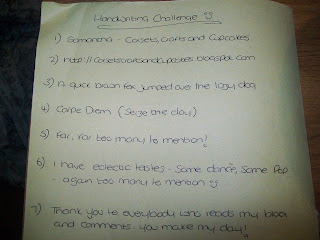 Handwriting Challenge
1) Samantha - Corsets, Crafts and Cupcakes
2) http://corsetscraftsandcupcakes.blogspot.com
3) A quick brown fox jumped over the lazy dog
4) Carpe Diem (Seize the day)
5) Far, far too many to mention!
6) I have eclectic tastes - Some dance, Some Pop
- again too many to mention
7) Thank you to everybody who reads my blog
and comments. You make my day!